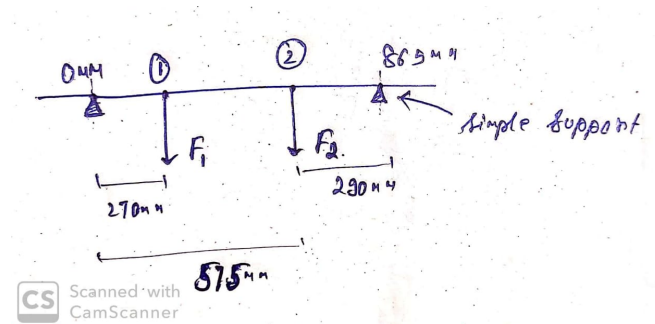 0mm
①
②
865mm
Simple Support
F₁
F₂.
270mm
290mm
575mm
CS Scanned with
CamScanner